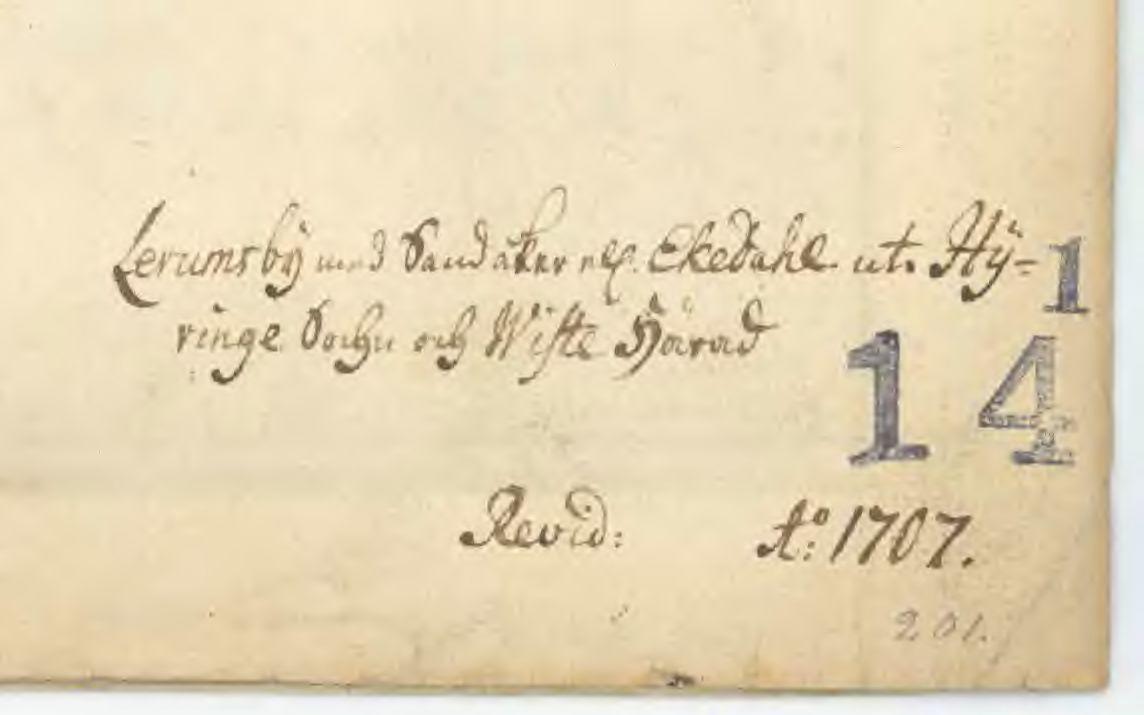 Lerumsbÿ med Sandåker elr. Ekedahl uti Hÿ- 1
ringe Sochn och Wiste Härad
14
Revid: Ao: 1707.
201.